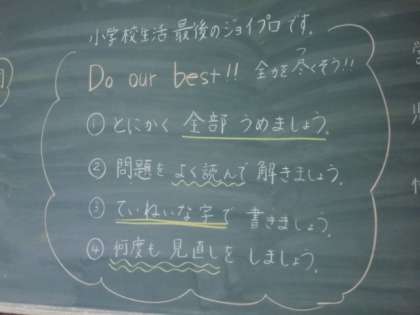 小学校生活最後のジョイプロです。
Do our best!! 全力を尽くそう!!
① とにかく 全部 うめましょう。
② 問題を よく読んで 解きましょう。
③ ていねいな字で 書きましょう。
④ 何度も 見直しを しましょう。